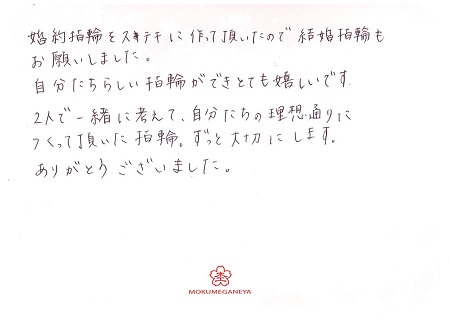 婚約指輪をスキテキに作って頂いたので結婚指輪も
お願いしました。
自分たちらしい指輪ができとても嬉しいです。
2人で一緒に考えて、自分たちの理想通りに
つくって頂いた指輪。ずっと大切にします。
ありがとうございました。
MOKUMEGANEYA